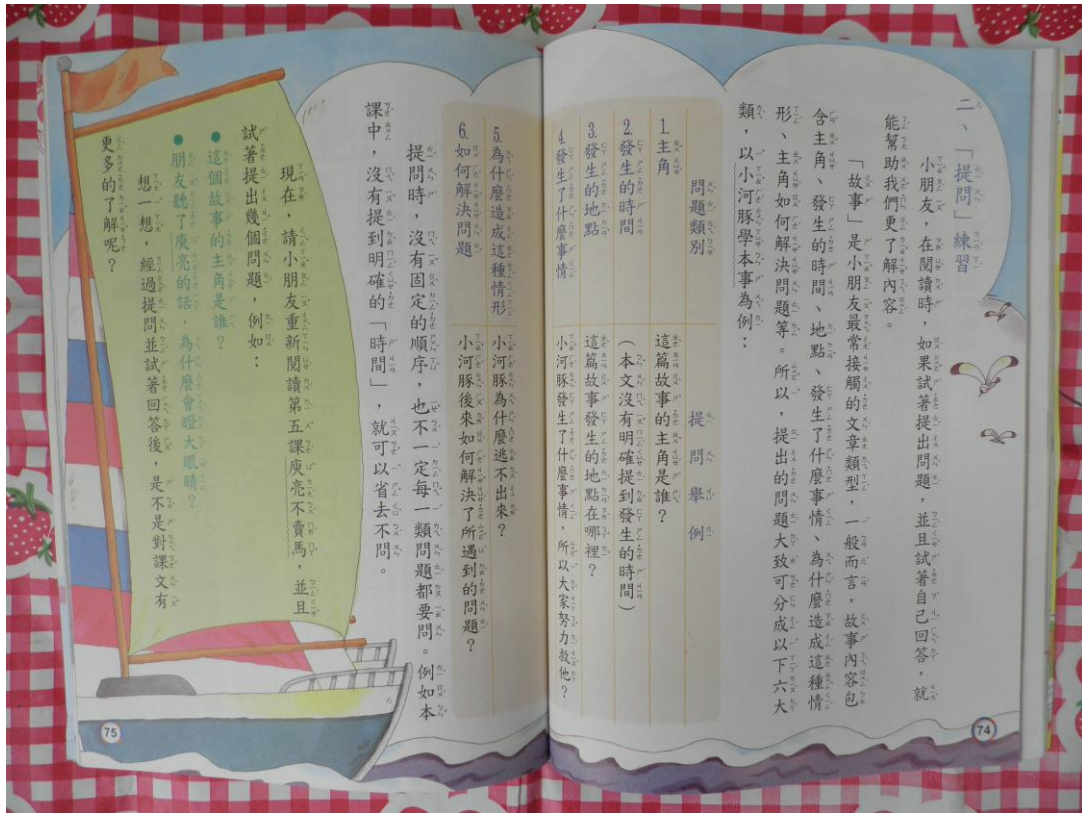 二、「提問」練習
小朋友，在閱讀時，如果試著提出問題，並且試著自己回答，就
能幫助我們更了解內容。
「故事」是小朋友最常接觸的文章類型，一般而言，故事內容包
含主角、發生的時間、地點、發生了什麼事情、為什麼造成這種情
形、主角如何解決問題等。所以，提出的問題大致可分成以下六大
類，以小河豚學本事為例：
問題類別
提問舉例
1.主角
這篇故事的主角是誰？
2.發生的時間
（本文沒有明確提到發生的時間）
3.發生的地點
這篇故事發生的地點在哪裡？
4.發生了什麼事情
小河豚發生了什麼事情，所以大家努力救他？
74
5.為什麼造成這種情形
小河豚為什麼逃不出來？
6.如何解決問題
小河豚後來如何解決了所遇到的問題？
提問時，沒有固定的順序，也不一定每一類問題都要問。例如本
課中，沒有提到明確的「時間」，就可以省去不問。
現在，請小朋友重新閱讀第五課庾亮不賣馬，並且
試著提出幾個問題，例如：
●這個故事的主角是誰？
●朋友聽了庾亮的話，為什麼會瞪大眼睛？
想一想，經過提問並試著回答後，是不是對課文有
更多的了解呢？
75